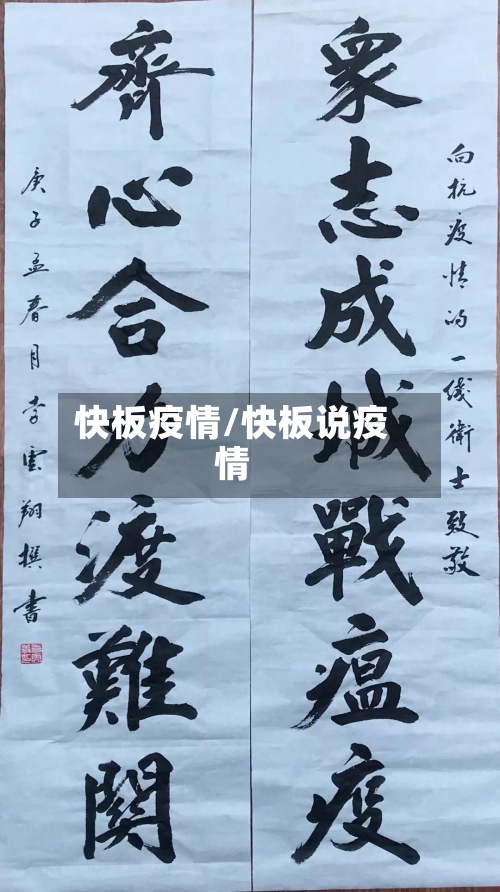 向抗疫情的一线衛士致敬
衆志成城戰瘟疫
齊心合力渡難関
庚子孟春月李雲翔撰書
快板疫情/快板说疫
情